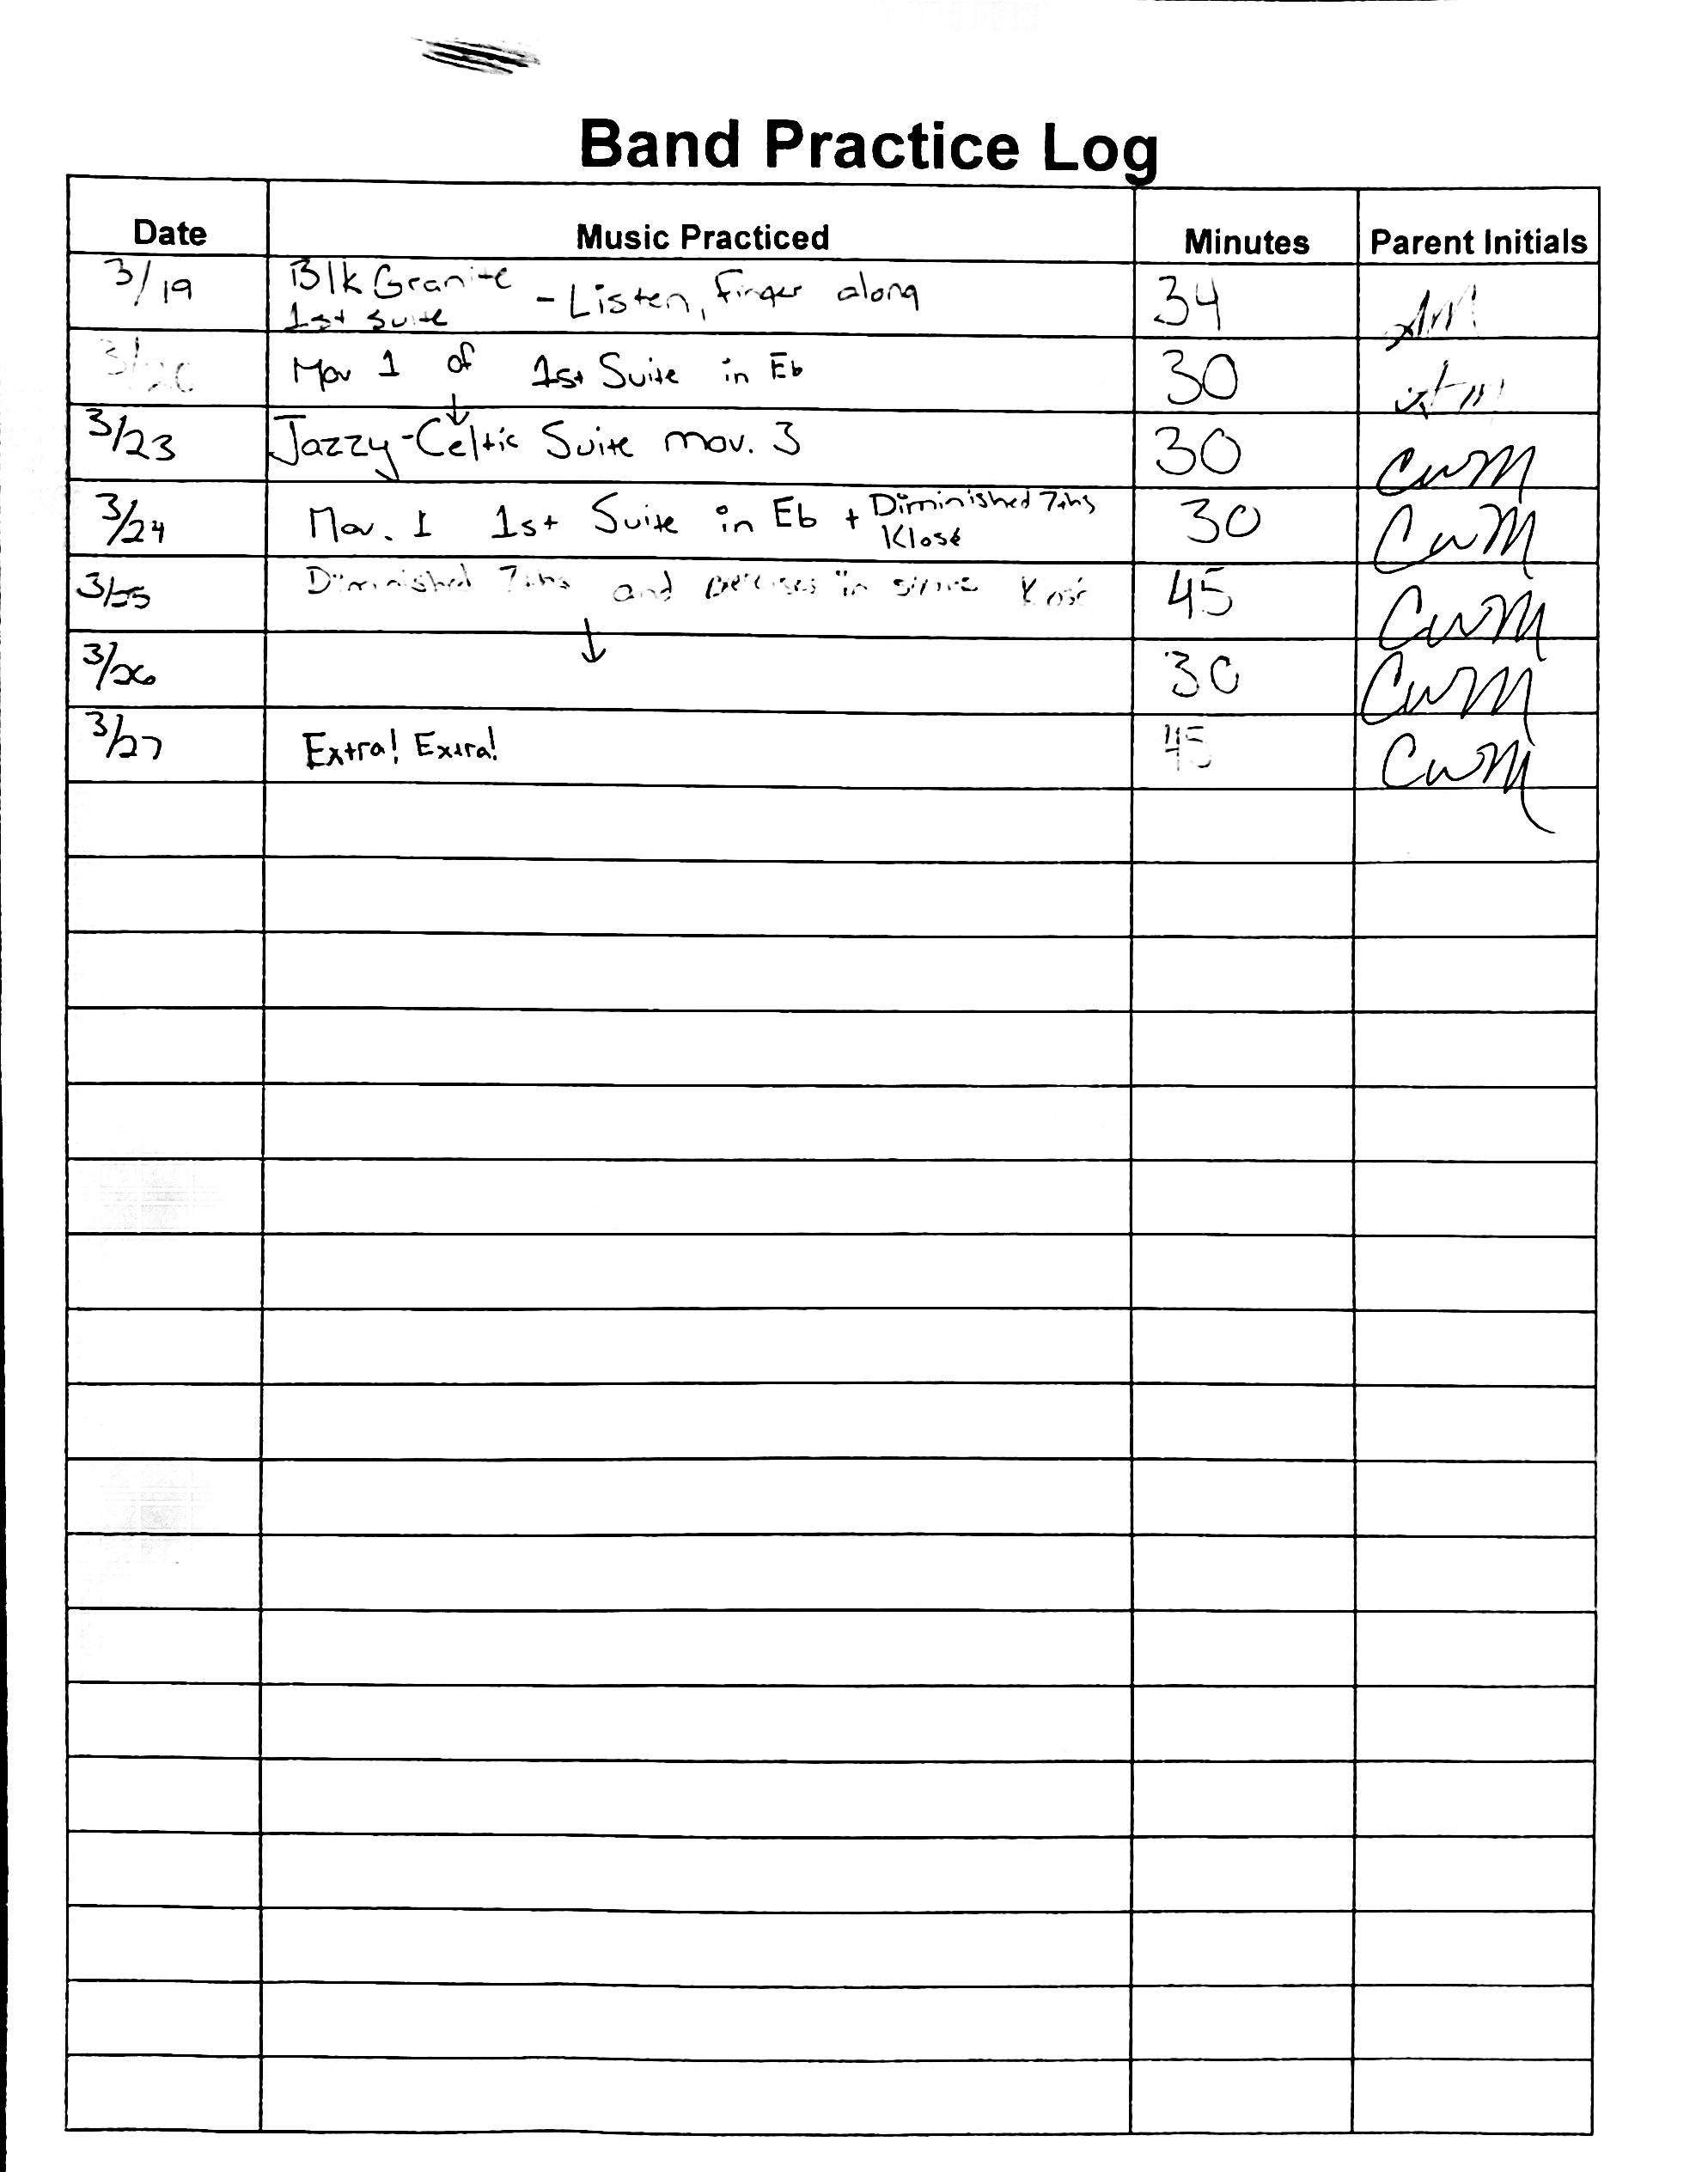 Band Practice Log
Date Music Practiced Minutes Parent Initials
3/19 Blk Granite - Listen, finger along 34
1st Suite
3/20 Mov 1 of 1st Suite in Eb 30
3/23 Jazzy-Celtic Suite mov. 3 30 CWM
3/24 Mov. 1 1st Suite in Eb + Diminished 7ths 30 CWM
Klosé
3/25 Diminished 7ths and exercises in Klosé 45 CWM
3/26 ↓ 30 CWM
3/27 Extra! Extra! 45 CWM